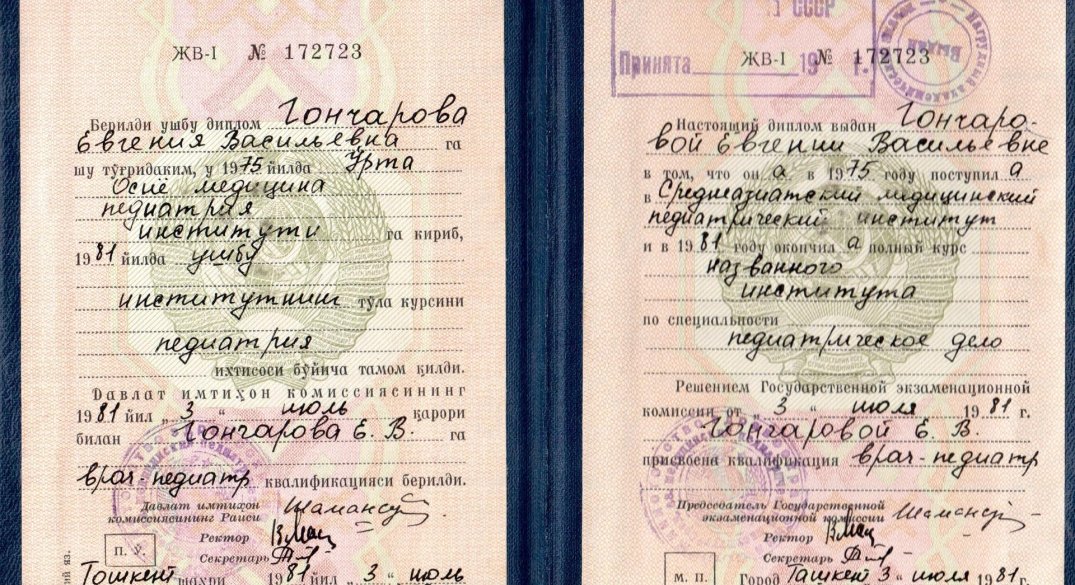 ЖВ-I № 172723
Берилди ушбу диплом Гончарова
Евгения Васильевна га
шу тўғридаким, у 1975 йилда Ўрта
Осиё медицина
педиатрия
институти
га кириб,
1981 йилда ушбу
институтнинг тўла курсини
педиатрия
ихтисоси бўйича тамом қилди.
Давлат имтиҳон комиссиясининг
1981 йил „3“ июль қарори
билан Гончарова Е. В. га
врач-педиатр квалификацияси берилди.
Давлат имтиҳон
комиссиясининг Раиси
Ректор
Секретарь
Тошкент шаҳри 1981 йил „3“ июль
СССР
Принята 19 г.
ЖВ-I № 172723
Настоящий диплом выдан Гончаро-
вой Евгении Васильевне
в том, что он а в 1975 году поступил а
в Среднеазиатский медицинский
педиатрический институт
и в 1981 году окончил а полный курс
названного
института
по специальности
педиатрическое дело
Решением Государственной экзаменационной
комиссии от „3“ июля 1981 г.
Гончаровой Е. В
присвоена квалификация врач-педиатр
Председатель Государственной
экзаменационной комиссии
Ректор
Секретарь
М. П.
Город Ташкент 3 июля 1981 г.